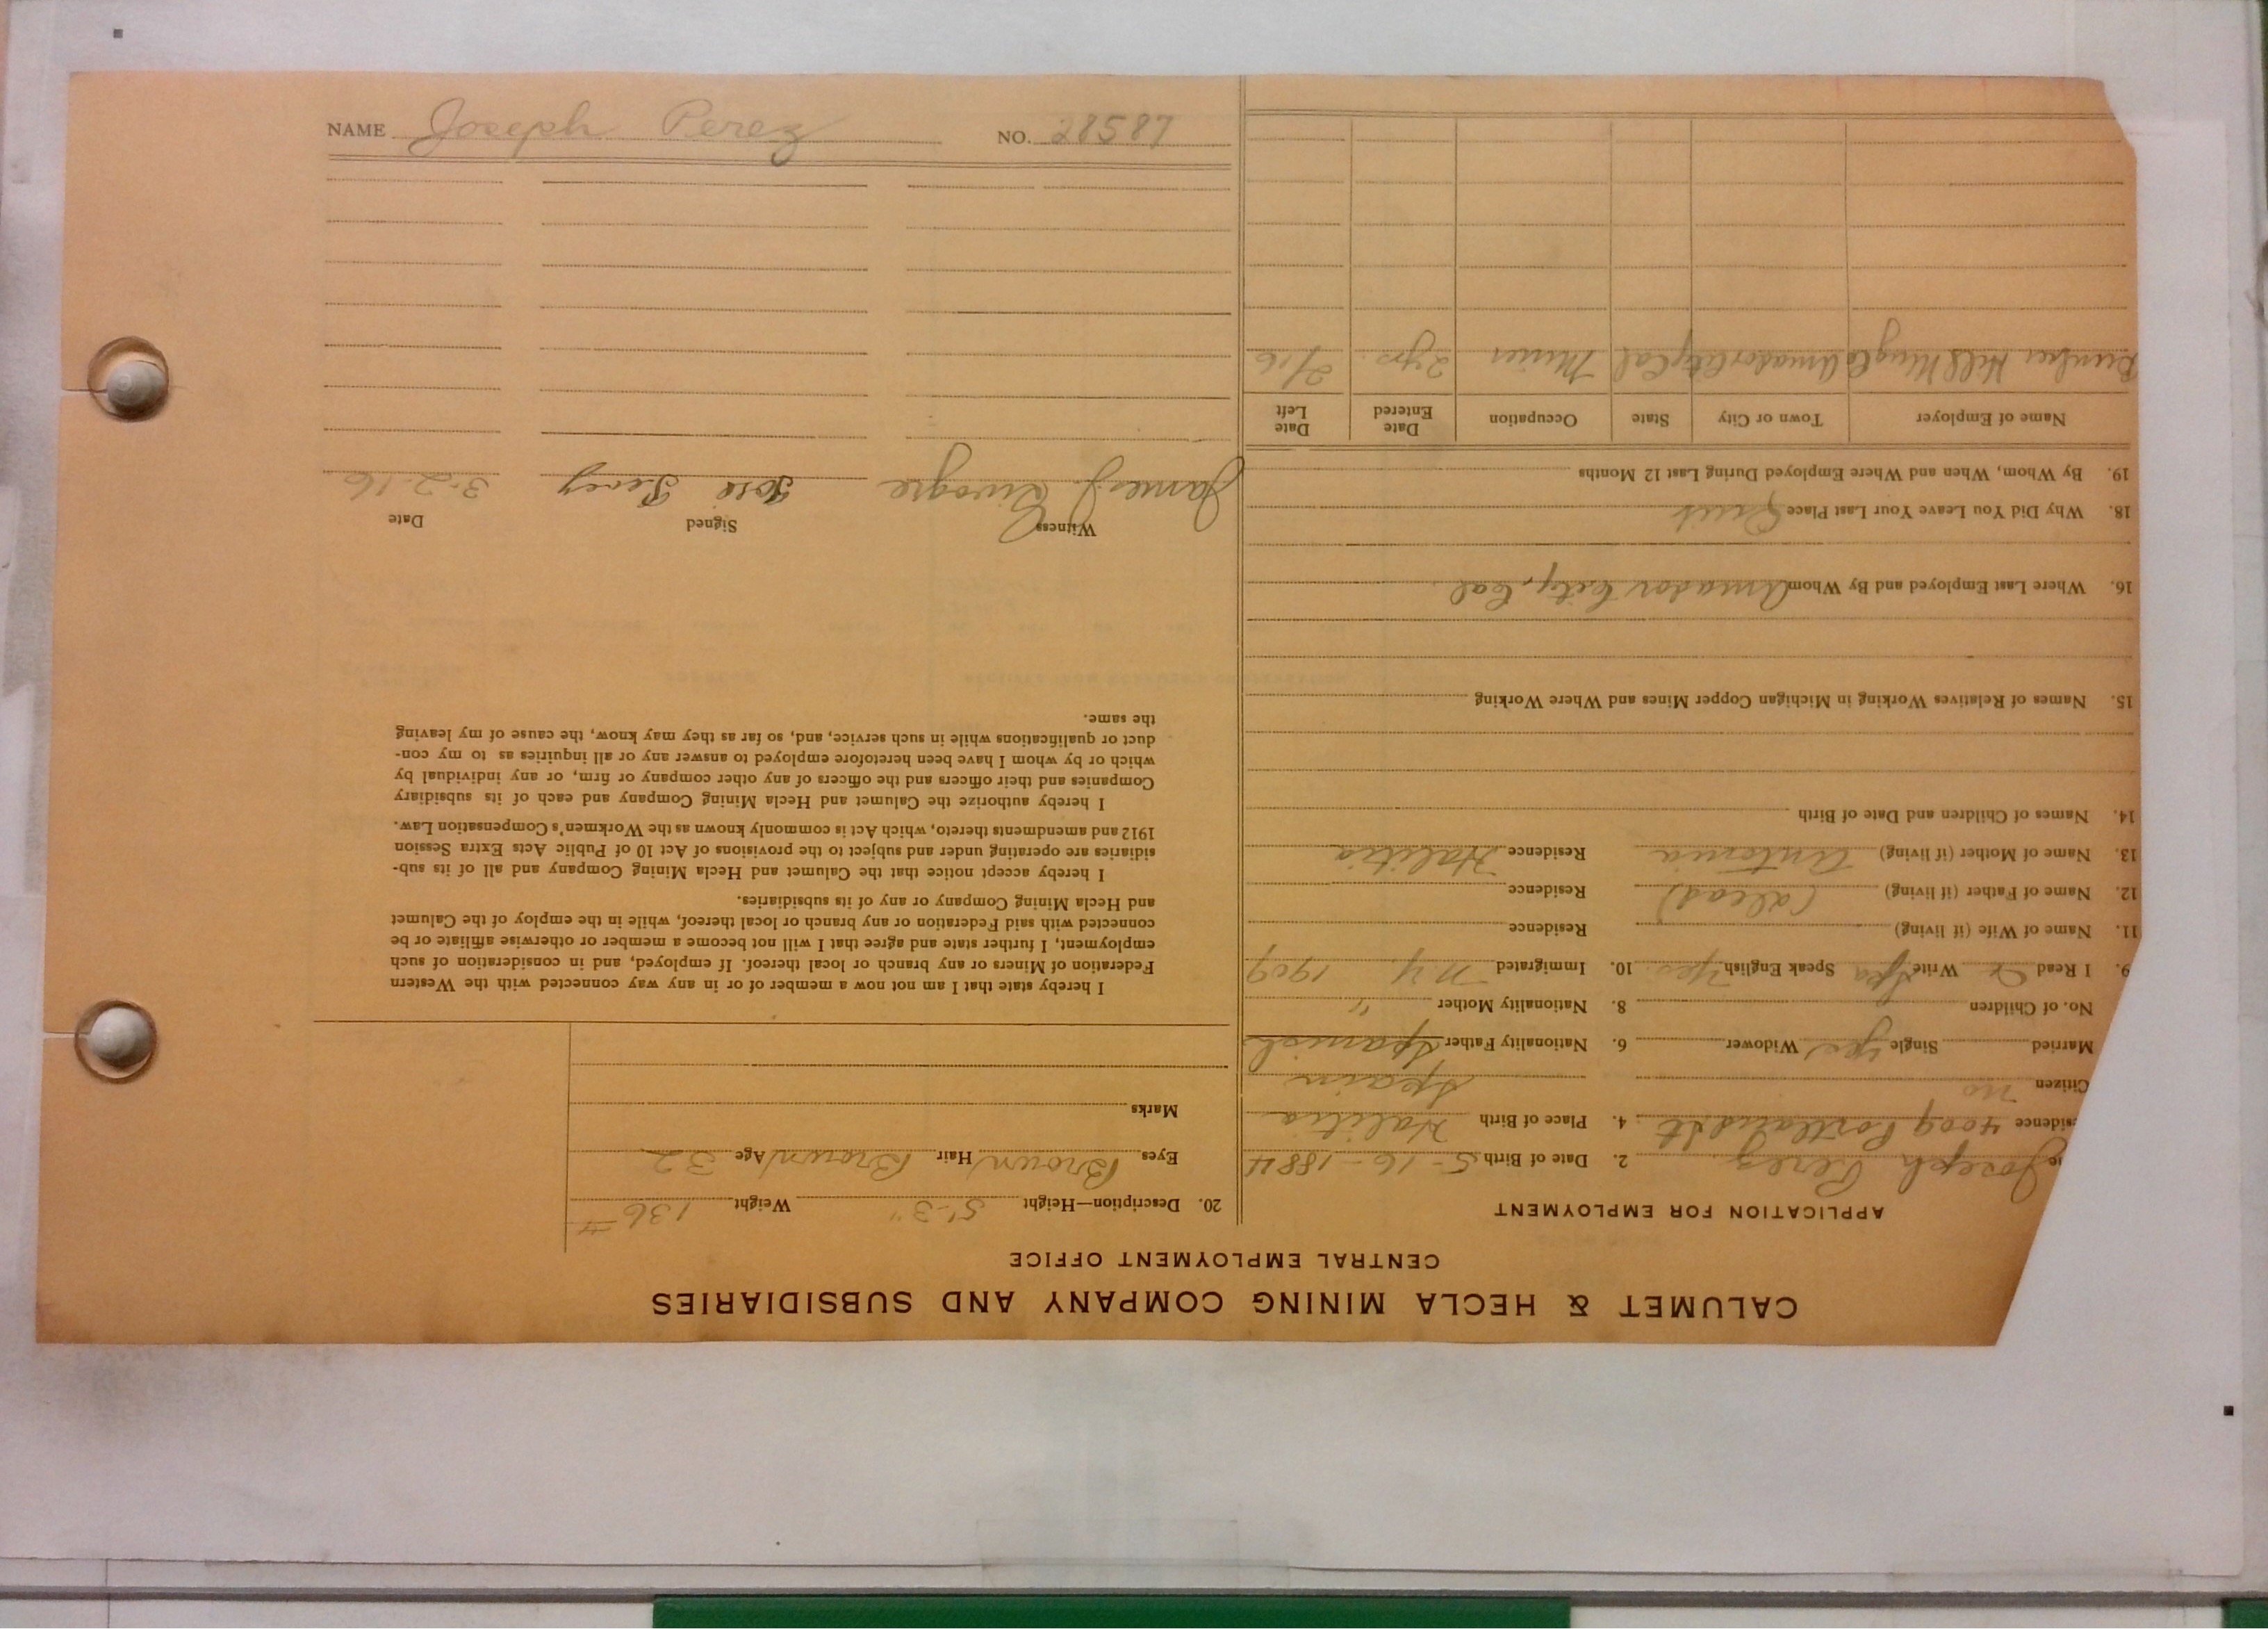 NAME Joseph Perez NO. 28587
CALUMET & HECLA MINING COMPANY AND SUBSIDIARIES
CENTRAL EMPLOYMENT OFFICE
APPLICATION FOR EMPLOYMENT
Joseph Perez 2. Date of Birth 5-16-1884
sidence 4009 Portland St 4. Place of Birth Halitia
Citizen no Spain
Married Single yes Widower 6. Nationality Father Spanish
No. of Children 8. Nationality Mother "
9. I Read & Write Spa Speak English Yes 10. Immigrated N.Y. 1909
11. Name of Wife (if living) Residence
12. Name of Father (if living) (dead) Residence
13. Name of Mother (if living) Antonia Residence Halitia
14. Names of Children and Date of Birth
15. Names of Relatives Working in Michigan Copper Mines and Where Working
16. Where Last Employed and By Whom Amador City, Cal
18. Why Did You Leave Your Last Place Quit
19. By Whom, When and Where Employed During Last 12 Months
Name of Employer Town or City State Occupation Date Entered Date Left
Bunker Hill Amador City Cal Miner 2 yrs. 2/16
20. Description—Height 5'-3" Weight 136 #
Eyes Brown Hair Brown Age 32
Marks
I hereby state that I am not now a member of or in any way connected with the Western
Federation of Miners or any branch or local thereof. If employed, and in consideration of such
employment, I further state and agree that I will not become a member or otherwise affiliate or be
connected with said Federation or any branch or local thereof, while in the employ of the Calumet
and Hecla Mining Company or any of its subsidiaries.
I hereby accept notice that the Calumet and Hecla Mining Company and all of its sub-
sidiaries are operating under and subject to the provisions of Act 10 of Public Acts Extra Session
1912 and amendments thereto, which Act is commonly known as the Workmen's Compensation Law.
I hereby authorize the Calumet and Hecla Mining Company and each of its subsidiary
Companies and their officers and the officers of any other company or firm, or any individual by
which or by whom I have been heretofore employed to answer any or all inquiries as to my con-
duct or qualifications while in such service, and, so far as they may know, the cause of my leaving
the same.
Witness Signed Date
James J. Jose Perez 3-2-16